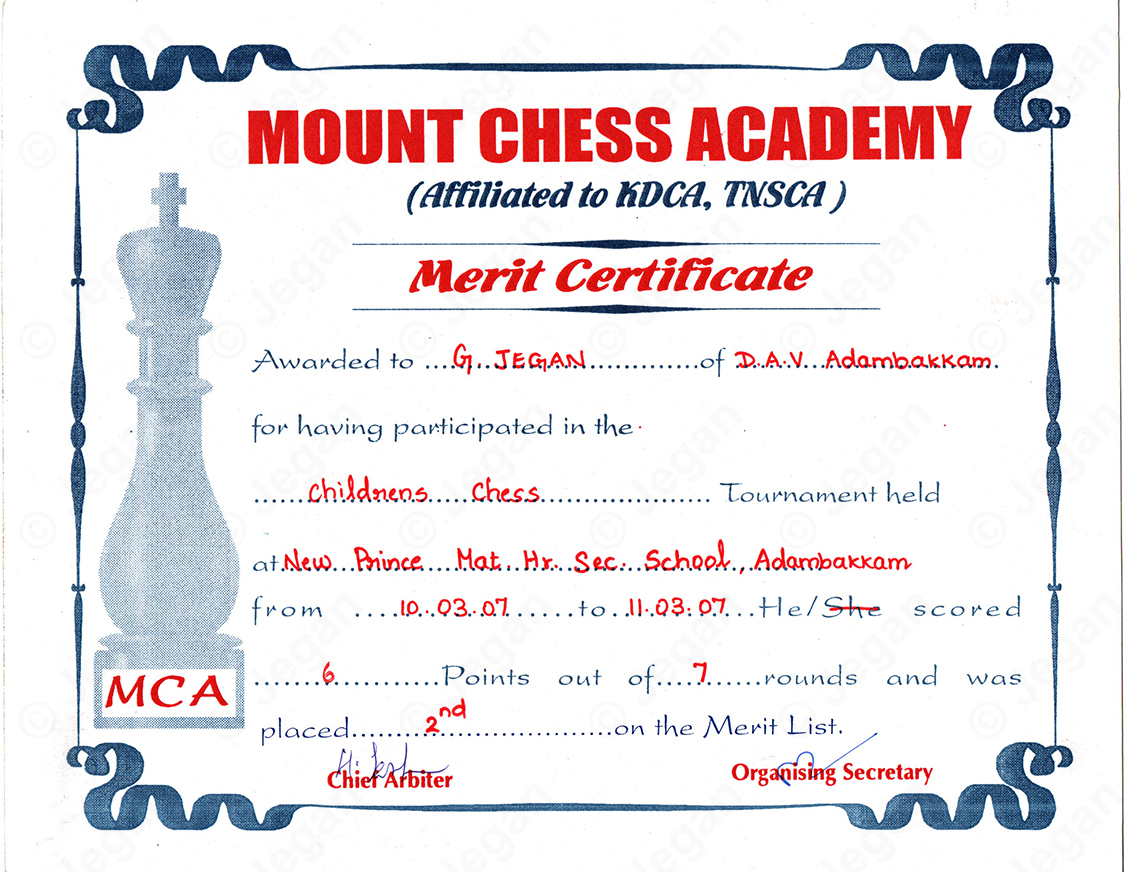 MOUNT CHESS ACADEMY
(Affiliated to KDCA, TNSCA )
Merit Certificate
Awarded to ...G. JEGAN..............of D.A.V Adambakkam.
for having participated in the
......Childrens Chess..................... Tournament held
at New Prince Mat. Hr. Sec. School, Adambakkam
from ....10.03.07.......to...11.03.07...He/She scored
........6............Points out of....7......rounds and was
placed.........2nd..................on the Merit List.
MCA
Chief Arbiter
Organising Secretary
© Jegan